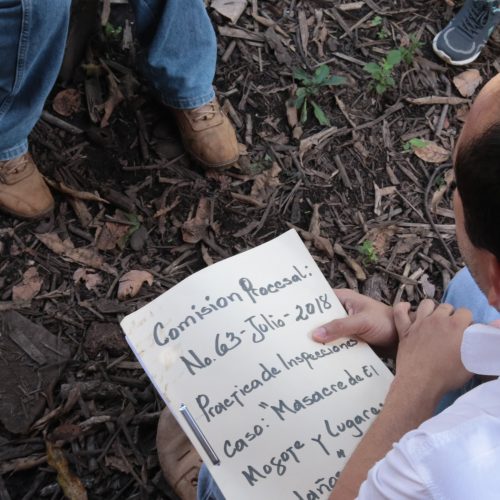 Comision Procesal:
No. 63-Julio-2018
Practica de Inspecciones
Caso: "Masacre de El
Mozote y Lugares